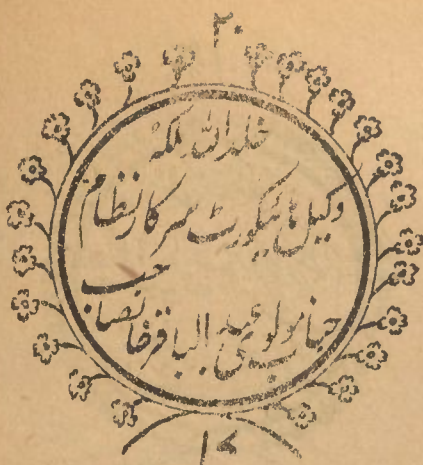 ۲۰
خلد اللہ ملکہ
وکیل ہائیکورٹ سرکار نظام
جناب مولوی عبد الباقر خانصاحب